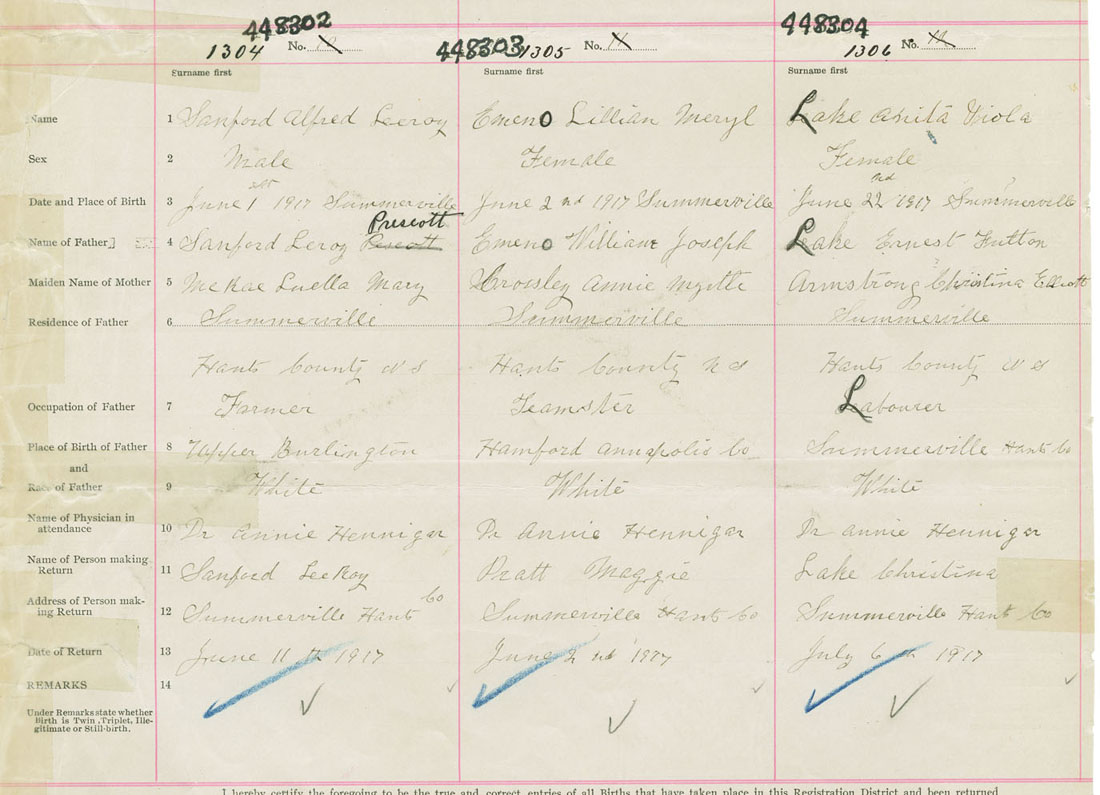 448302 448303 448304
1304 No. 10 1305 No. 11 1306 No. 12
Surname first Surname first Surname first
Name 1 Sanford Alfred Leeroy Emeno Lillian Meryl Lake Anita Viola
Sex 2 Male Female Female
Date and Place of Birth 3 June 1st 1917 Summerville June 2nd 1917 Summerville June 22nd 1917 Summerville
Prescott
Name of Father 4 Sanford Leroy Emeno William Joseph Lake Ernest Fulton
Maiden Name of Mother 5 McRae Luella Mary Crossley Annie Armstrong Christina Elliott
Residence of Father 6 Summerville Summerville Summerville
Hants County N S Hants County N S Hants County N S
Occupation of Father 7 Farmer Teamster Labourer
Place of Birth of Father 8 Upper Burlington Annapolis Co Summerville Hants Co
and
Race of Father 9 White White White
Name of Physician in
attendance 10 Dr Annie Hennigar Dr Annie Hennigar Dr Annie Hennigar
Name of Person making
Return 11 Sanford LeeRoy Pratt Maggie Lake Christina
Address of Person mak-
ing Return 12 Summerville Hants Co Summerville Hants Co Summerville Hants Co
Date of Return 13 June 11th 1917 June 2nd July 6th 1917
REMARKS 14
Under Remarks state whether
Birth is Twin, Triplet, Ille-
gitimate or Still-birth.
I hereby certify the foregoing to be the true and correct entries of all Births that have taken place in this Registration District and been returned